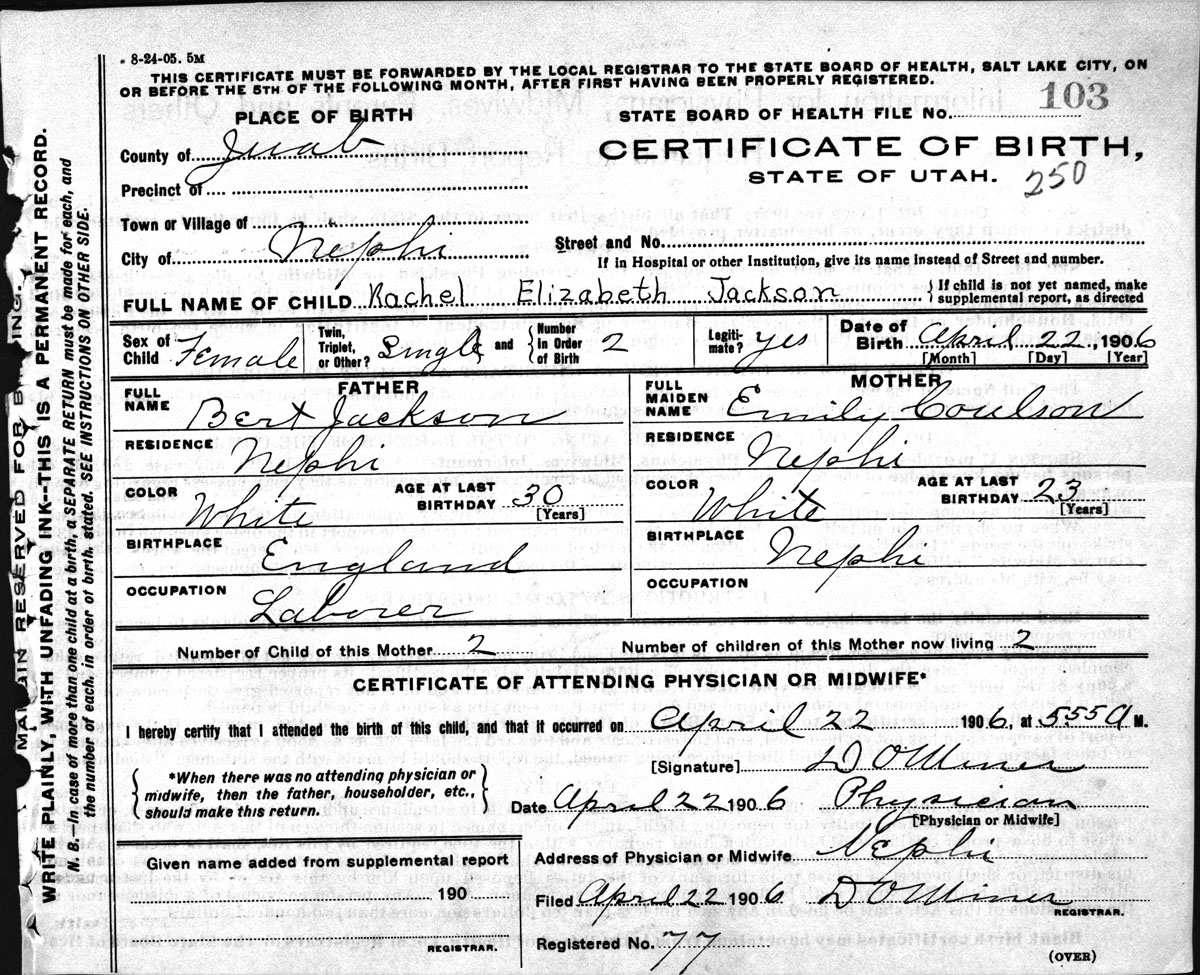 8-24-05. 5M
THIS CERTIFICATE MUST BE FORWARDED BY THE LOCAL REGISTRAR TO THE STATE BOARD OF HEALTH, SALT LAKE CITY, ON
OR BEFORE THE 5TH OF THE FOLLOWING MONTH, AFTER FIRST HAVING BEEN PROPERLY REGISTERED.
PLACE OF BIRTH
STATE BOARD OF HEALTH FILE No. 103
County of Juab
CERTIFICATE OF BIRTH,
STATE OF UTAH. 250
Precinct of
Town or Village of
City of Nephi
Street and No.
If in Hospital or other Institution, give its name instead of Street and number.
FULL NAME OF CHILD Rachel Elizabeth Jackson } If child is not yet named, make supplemental report, as directed
Sex of Child Female
Twin, Triplet, or Other? Single and { Number in Order of Birth 2
Legitimate? yes
Date of Birth April 22, 1906
[Month] [Day] [Year]
FATHER
FULL NAME Bert Jackson
RESIDENCE Nephi
COLOR White
AGE AT LAST BIRTHDAY 30 [Years]
BIRTHPLACE England
OCCUPATION Laborer
MOTHER
FULL MAIDEN NAME Emily Coulson
RESIDENCE Nephi
COLOR White
AGE AT LAST BIRTHDAY 23 [Years]
BIRTHPLACE Nephi
OCCUPATION
Number of Child of this Mother 2
Number of children of this Mother now living 2
CERTIFICATE OF ATTENDING PHYSICIAN OR MIDWIFE*
I hereby certify that I attended the birth of this child, and that it occurred on April 22 1906. at 555 A M.
[Signature] D O Miner
{ *When there was no attending physician or midwife, then the father, householder, etc., should make this return. }
Date April 22 1906 Physician
[Physician or Midwife]
Given name added from supplemental report
190
REGISTRAR.
Address of Physician or Midwife Nephi
Filed April 22 1906 D O Miner
REGISTRAR.
Registered No. 77
(OVER)
MARGIN RESERVED FOR BINDING
WRITE PLAINLY, WITH UNFADING INK—THIS IS A PERMANENT RECORD.
N. B.—In case of more than one child at a birth, a SEPARATE RETURN must be made for each, and
the number of each, in order of birth, stated. SEE INSTRUCTIONS ON OTHER SIDE.